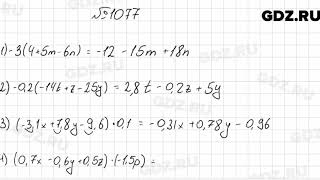 GDZ.RU
№1077
1) -3(4+5m-6n) = -12 - 15m + 18n
2) -0,2(-14t+z-25y) = 2,8t - 0,2z + 5y
3) (-3,1x+7,8y-9,6)·0,1 = -0,31x + 0,78y - 0,96
4) (0,7x - 0,6y + 0,5z)·(-1,5p) =